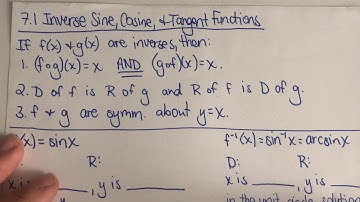 7.1 Inverse Sine, Cosine, & Tangent Functions
If f(x) & g(x) are inverses, then:
1. (f∘g)(x)=x AND (g∘f)(x)=x.
2. D of f is R of g and R of F is D of g.
3. f & g are symm. about y=x.
(x)=sinx
f⁻¹(x)=sin⁻¹x=arcsinx
R:
D: R:
x is ____, y is ____
x is ____, y is ____
in the unit circle